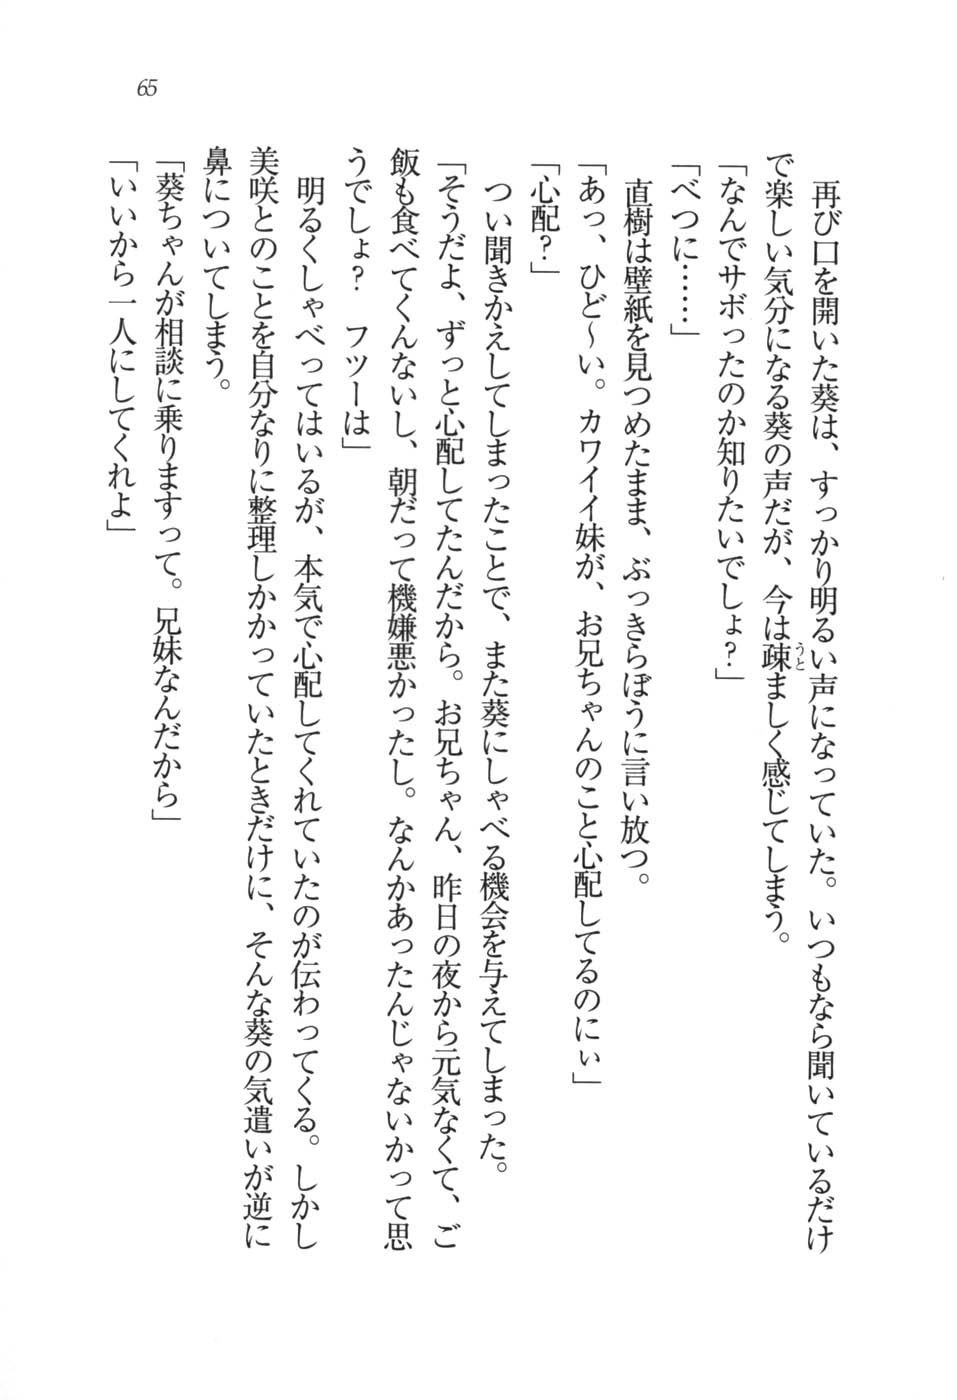 65
再び口を開いた葵は、すっかり明るい声になっていた。いつもなら聞いているだけ
で楽しい気分になる葵の声だが、今は疎うとましく感じてしまう。
「なんでサボったのか知りたいでしょ？」
「べつに……」
直樹は壁紙を見つめたまま、ぶっきらぼうに言い放つ。
「あっ、ひど〜い。カワイイ妹が、お兄ちゃんのこと心配してるのにぃ」
「心配？」
つい聞きかえしてしまったことで、また葵にしゃべる機会を与えてしまった。
「そうだよ、ずっと心配してたんだから。お兄ちゃん、昨日の夜から元気なくて、ご
飯も食べてくんないし、朝だって機嫌悪かったし。なんかあったんじゃないかって思
うでしょ？　フツーは」
明るくしゃべってはいるが、本気で心配してくれていたのが伝わってくる。しかし
美咲とのことを自分なりに整理しかかっていたときだけに、そんな葵の気遣いが逆に
鼻についてしまう。
「葵ちゃんが相談に乗りますって。兄妹なんだから」
「いいから一人にしてくれよ」